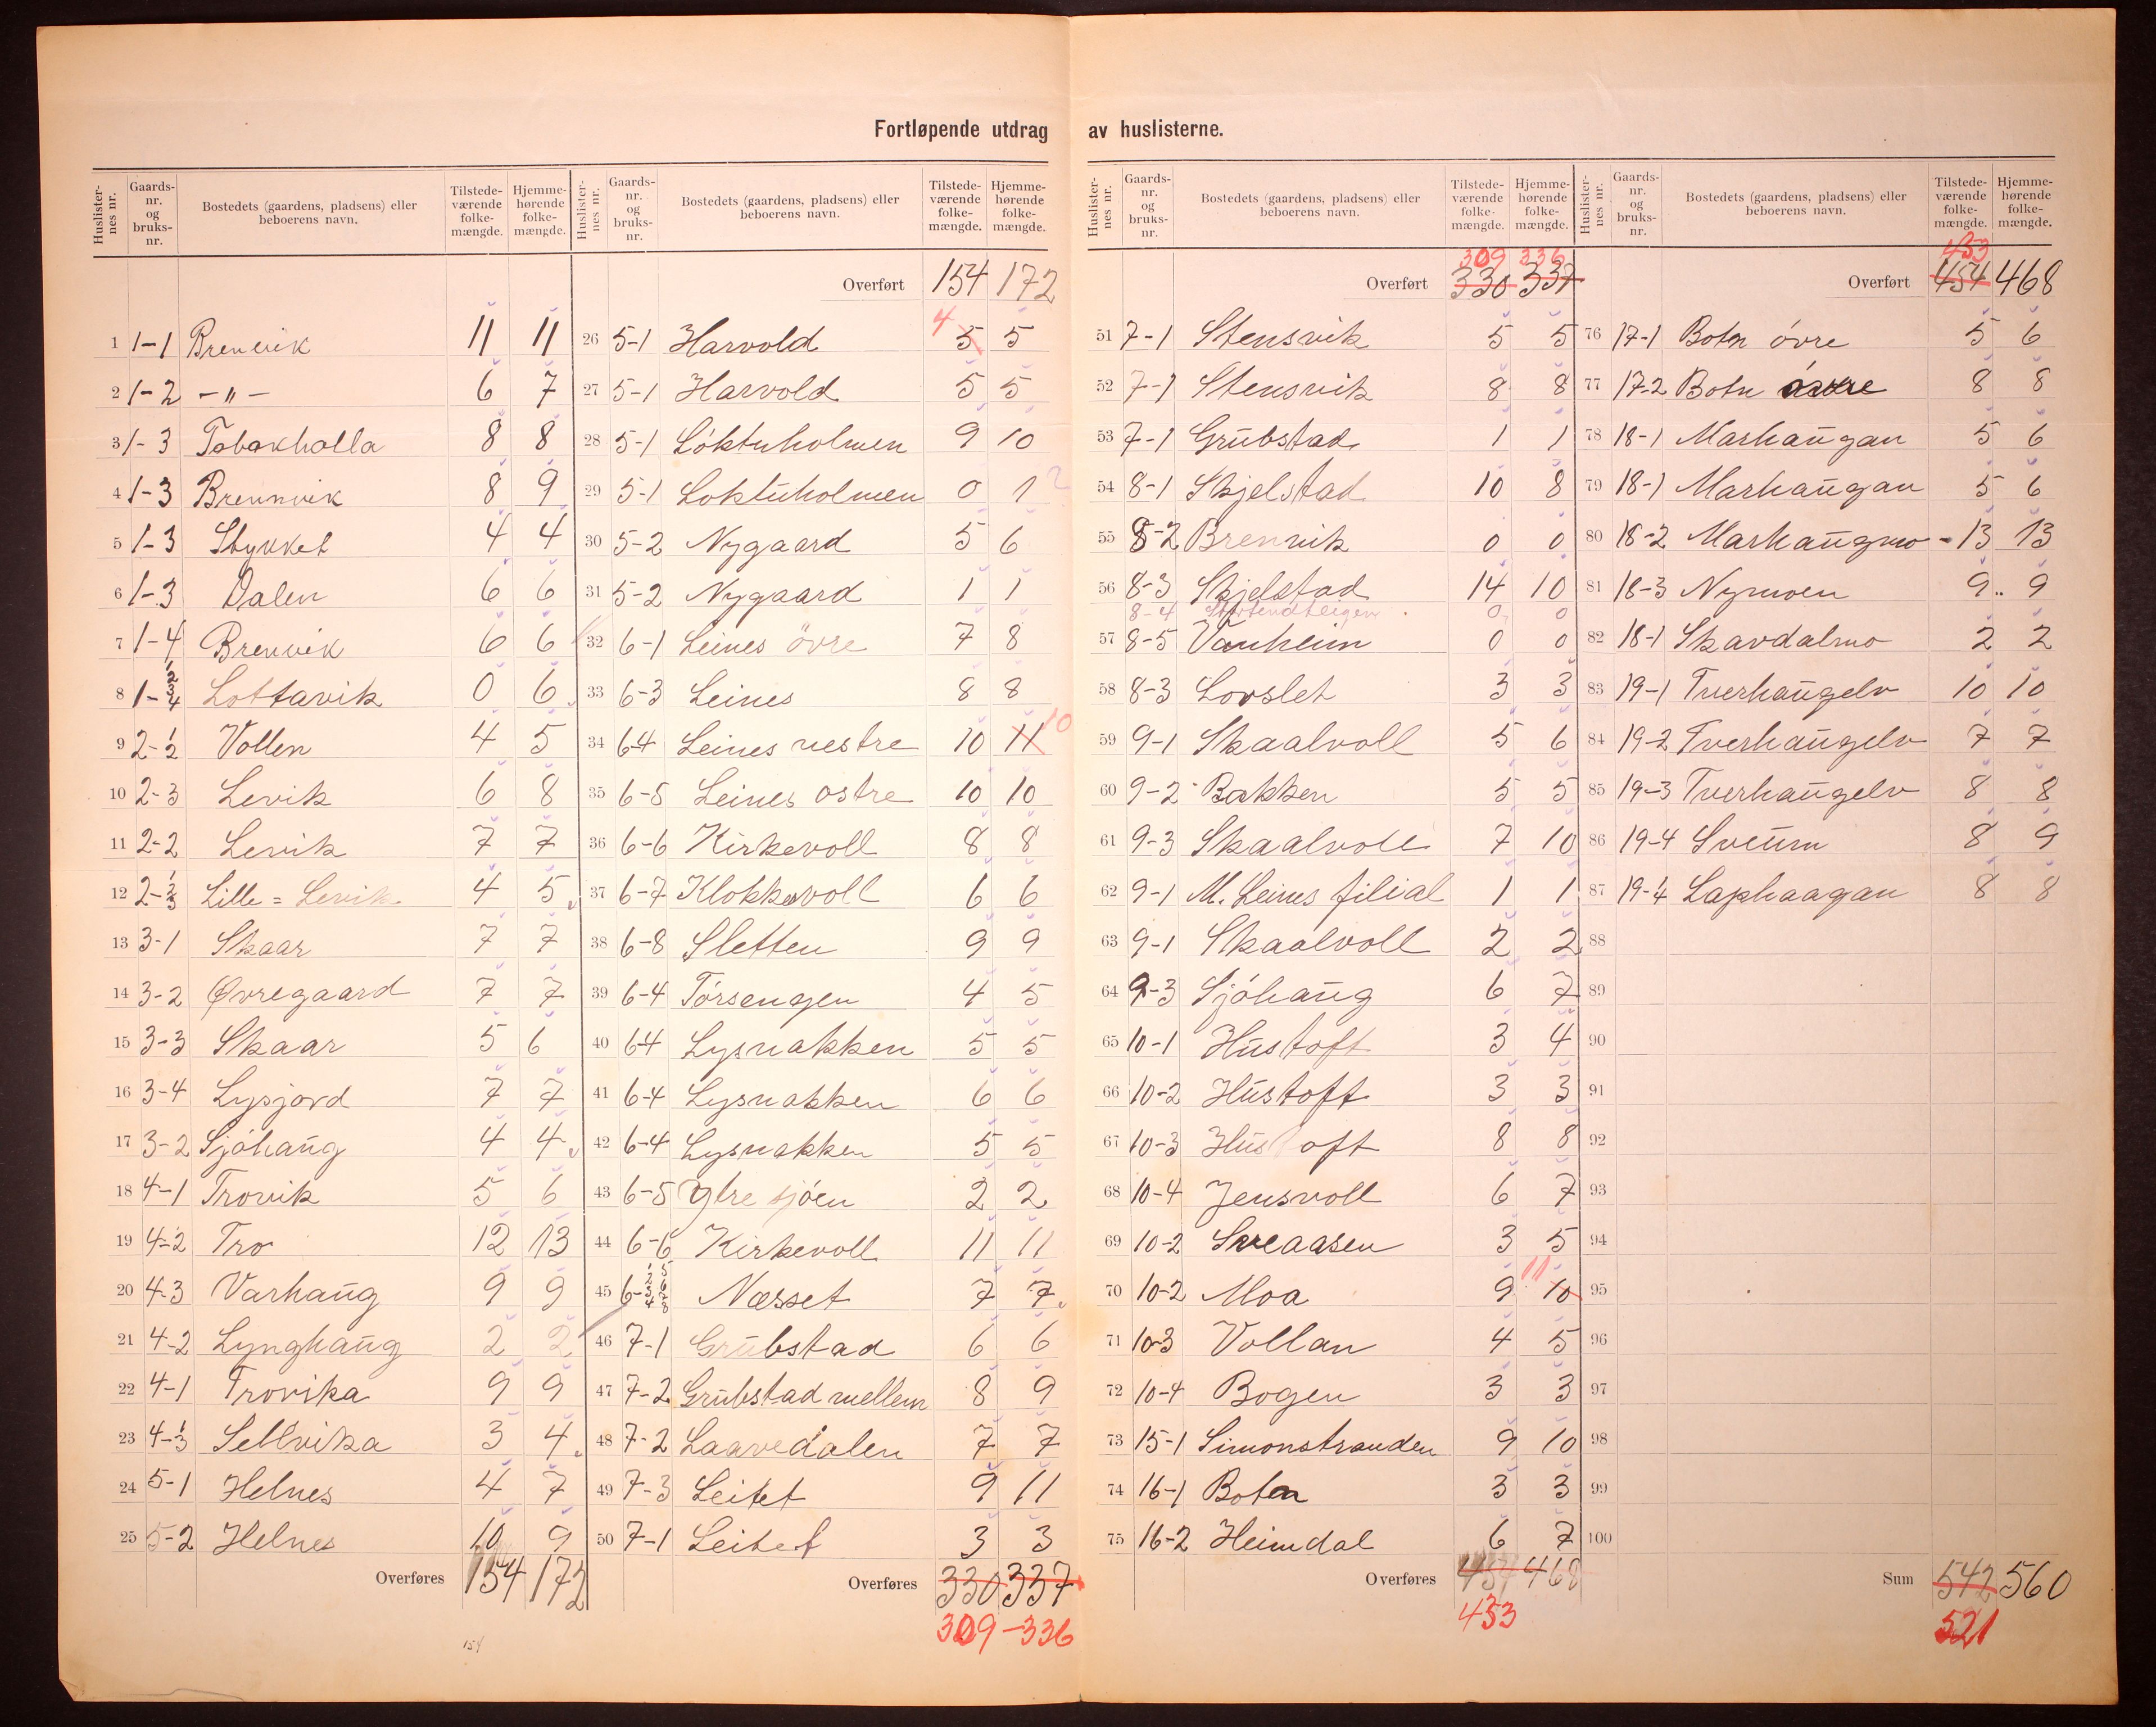 Fortløpende utdrag av huslisterne.
Huslister-nes nr. Gaards-nr. og bruks-nr. Bostedets (gaardens, pladsens) eller beboerens navn. Tilstede-værende folke-mængde. Hjemme-hørende folke-mængde.
1 1-1 Brenvik 11 11
2 1-2 -"- 6 7
3 1-3 Tobakholla 8 8
4 1-3 Brennvik 8 9
5 1-3 Stykket 4 4
6 1-3 Dalen 6 6
7 1-4 Brenvik 6 6
8 1-1/2/3/4 Lottavik 0 6
9 2-1/2 Vollen 4 5
10 2-3 Levik 6 8
11 2-2 Levik 7 7
12 2-1/2/3 Lille = Levik 4 5
13 3-1 Skaar 7 7
14 3-2 Øvregaard 7 7
15 3-3 Skaar 5 6
16 3-4 Lysjord 7 7
17 3-2 Sjöhaug 4 4
18 4-1 Trovik 5 6
19 4-2 Tro 12 13
20 4-3 Varhaug 9 9
21 4-2 Lynghaug 2 2
22 4-1 Trovika 9 9
23 4-1/3 Sellvika 3 4
24 5-1 Helnes 4 7
25 5-2 Helnes 10 9
Overføres 154 172
154
Huslister-nes nr. Gaards-nr. og bruks-nr. Bostedets (gaardens, pladsens) eller beboerens navn. Tilstede-værende folke-mængde. Hjemme-hørende folke-mængde.
Overført 154 172
26 5-1 Harvold 4 5 5
27 5-1 Harvold 5 5
28 5-1 Löktuholmen 9 10
29 5-1 Loktuholmen 0 1 2
30 5-2 Nygaard 5 6
31 5-2 Nygaard 1 1
32 6-1 Leines övre 7 8
33 6-3 Leines 8 8
34 6-4 Leines vestre 10 11 10
35 6-5 Leines ostre 10 10
36 6-6 Kirkevoll 8 8
37 6-7 Klokkavoll 6 6
38 6-8 Sletten 9 9
39 6-4 Törsengen 4 5
40 6-4 Lysnakken 5 5
41 6-4 Lysnakken 6 6
42 6-4 Lysnakken 5 5
43 6-5 Ytre sjöen 2 2
44 6-6 Kirkevoll 11 11
45 6-1/2/3/4 5/6/7/8 Næsset 7 7
46 7-1 Grubstad 6 6
47 7-2 Grubstad mellem 8 9
48 7-2 Laavedalen 7 7
49 7-3 Leitet 9 11
50 7-1 Leitet 3 3
Overføres 330 337
309 - 336
Huslister-nes nr. Gaards-nr. og bruks-nr. Bostedets (gaardens, pladsens) eller beboerens navn. Tilstede-værende folke-mængde. Hjemme-hørende folke-mængde.
309 336
Overført 330 337
51 7-1 Stensvik 5 5
52 7-1 Stensvik 8 8
53 7-1 Grubstad 1 1
54 8-1 Skjelstad 10 8
55 8-2 Brenvik 0 0
56 8-3 Skjelstad 14 10
8-4 0 0
57 8-5 Vanheim 0 0
58 8-3 Lovslet 3 3
59 9-1 Skaalvoll 5 6
60 9-2 Bakken 5 5
61 9-3 Skaalvoll 7 10
62 9-1 M. Leines filial 1 1
63 9-1 Skaalvoll 2 2
64 9-3 Sjöhaug 6 7
65 10-1 Hustoft 3 4
66 10-2 Hustoft 3 3
67 10-3 Hustoft 8 8
68 10-4 Jensvoll 6 7
69 10-2 Sveaasen 3 5
70 10-2 Moa 9 11 10
71 10-3 Vollan 4 5
72 10-4 Bogen 3 3
73 15-1 Simonstranden 9 10
74 16-1 Boten 3 3
75 16-2 Heimdal 6 7
Overføres 454 468
453
Huslister-nes nr. Gaards-nr. og bruks-nr. Bostedets (gaardens, pladsens) eller beboerens navn. Tilstede-værende folke-mængde. Hjemme-hørende folke-mængde.
453
Overført 454 468
76 17-1 Botn övre 5 6
77 17-2 Botn övre 8 8
78 18-1 Marhaugan 5 6
79 18-1 Marhaugan 5 6
80 18-2 Marhaugmo - 13 13
81 18-3 Nymoen 9 9
82 18-1 Skavdalmo 2 2
83 19-1 Tverhaugelv 10 10
84 19-2 Tverhaugelv 7 7
85 19-3 Tverhaugelv 8 8
86 19-4 Sveum 8 9
87 19-4 Laphaagan 8 8
88
89
90
91
92
93
94
95
96
97
98
99
100
Sum 542 560
521